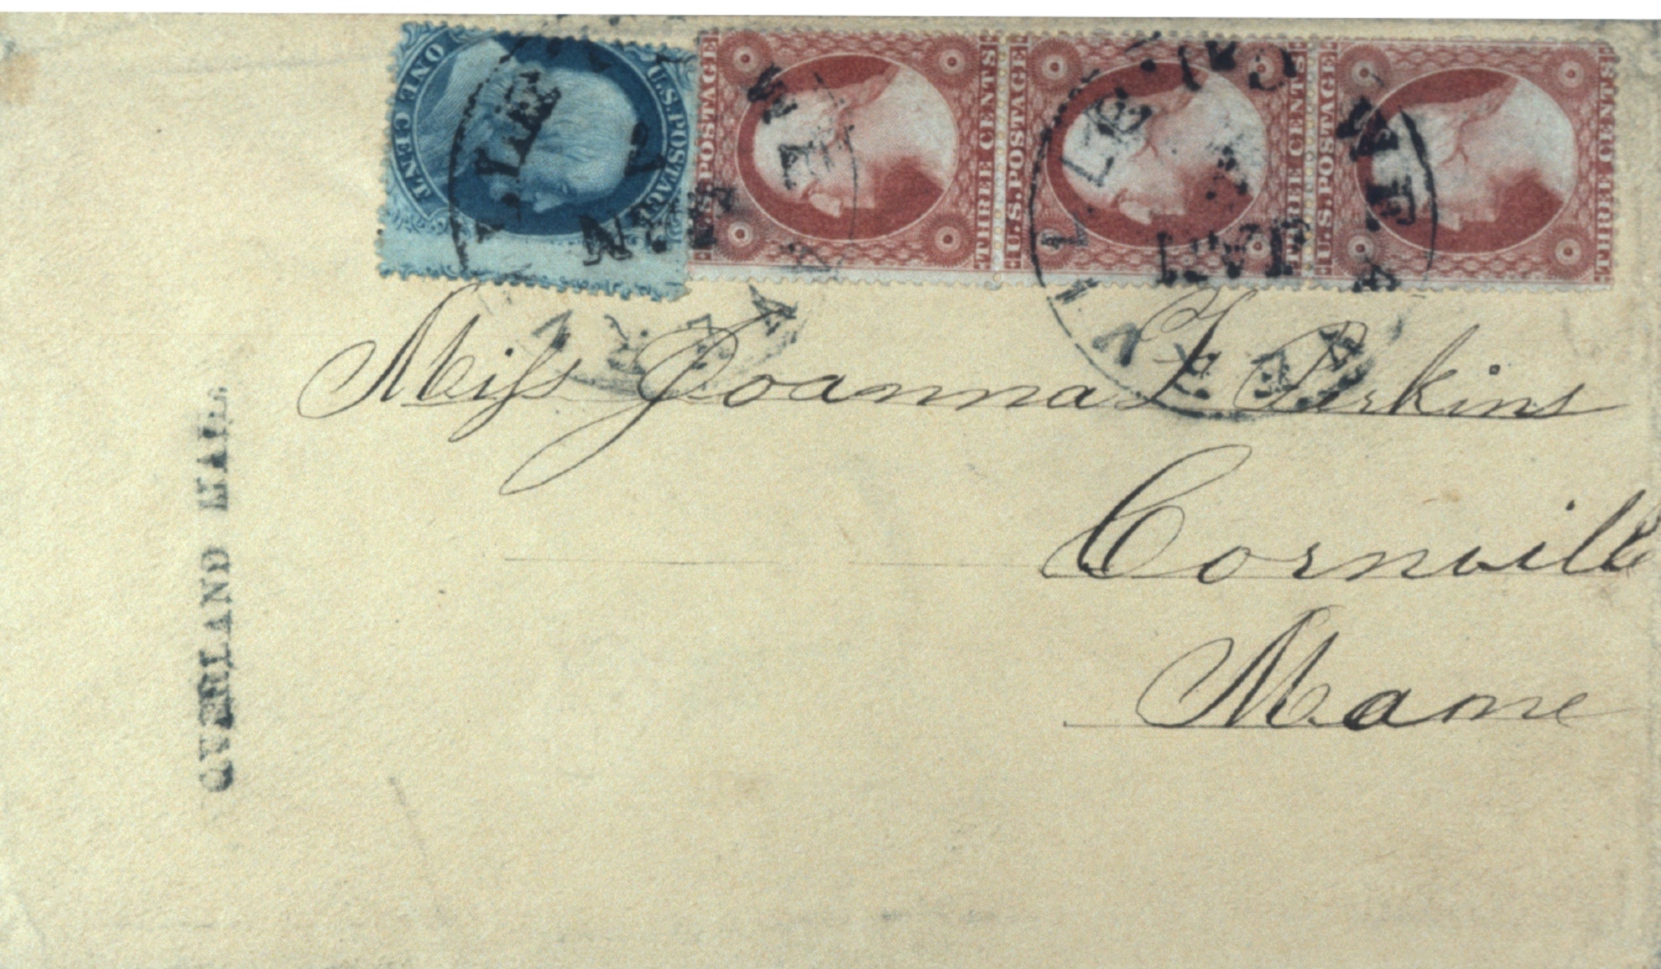 ONE CENT
U.S. POSTAGE
U.S. POSTAGE
THREE CENTS
U.S. POSTAGE
THREE CENTS
U.S. POSTAGE
THREE CENTS
JAN
JAN
Miss Joanna L Perkins
Cornville
Maine
OVERLAND MAIL